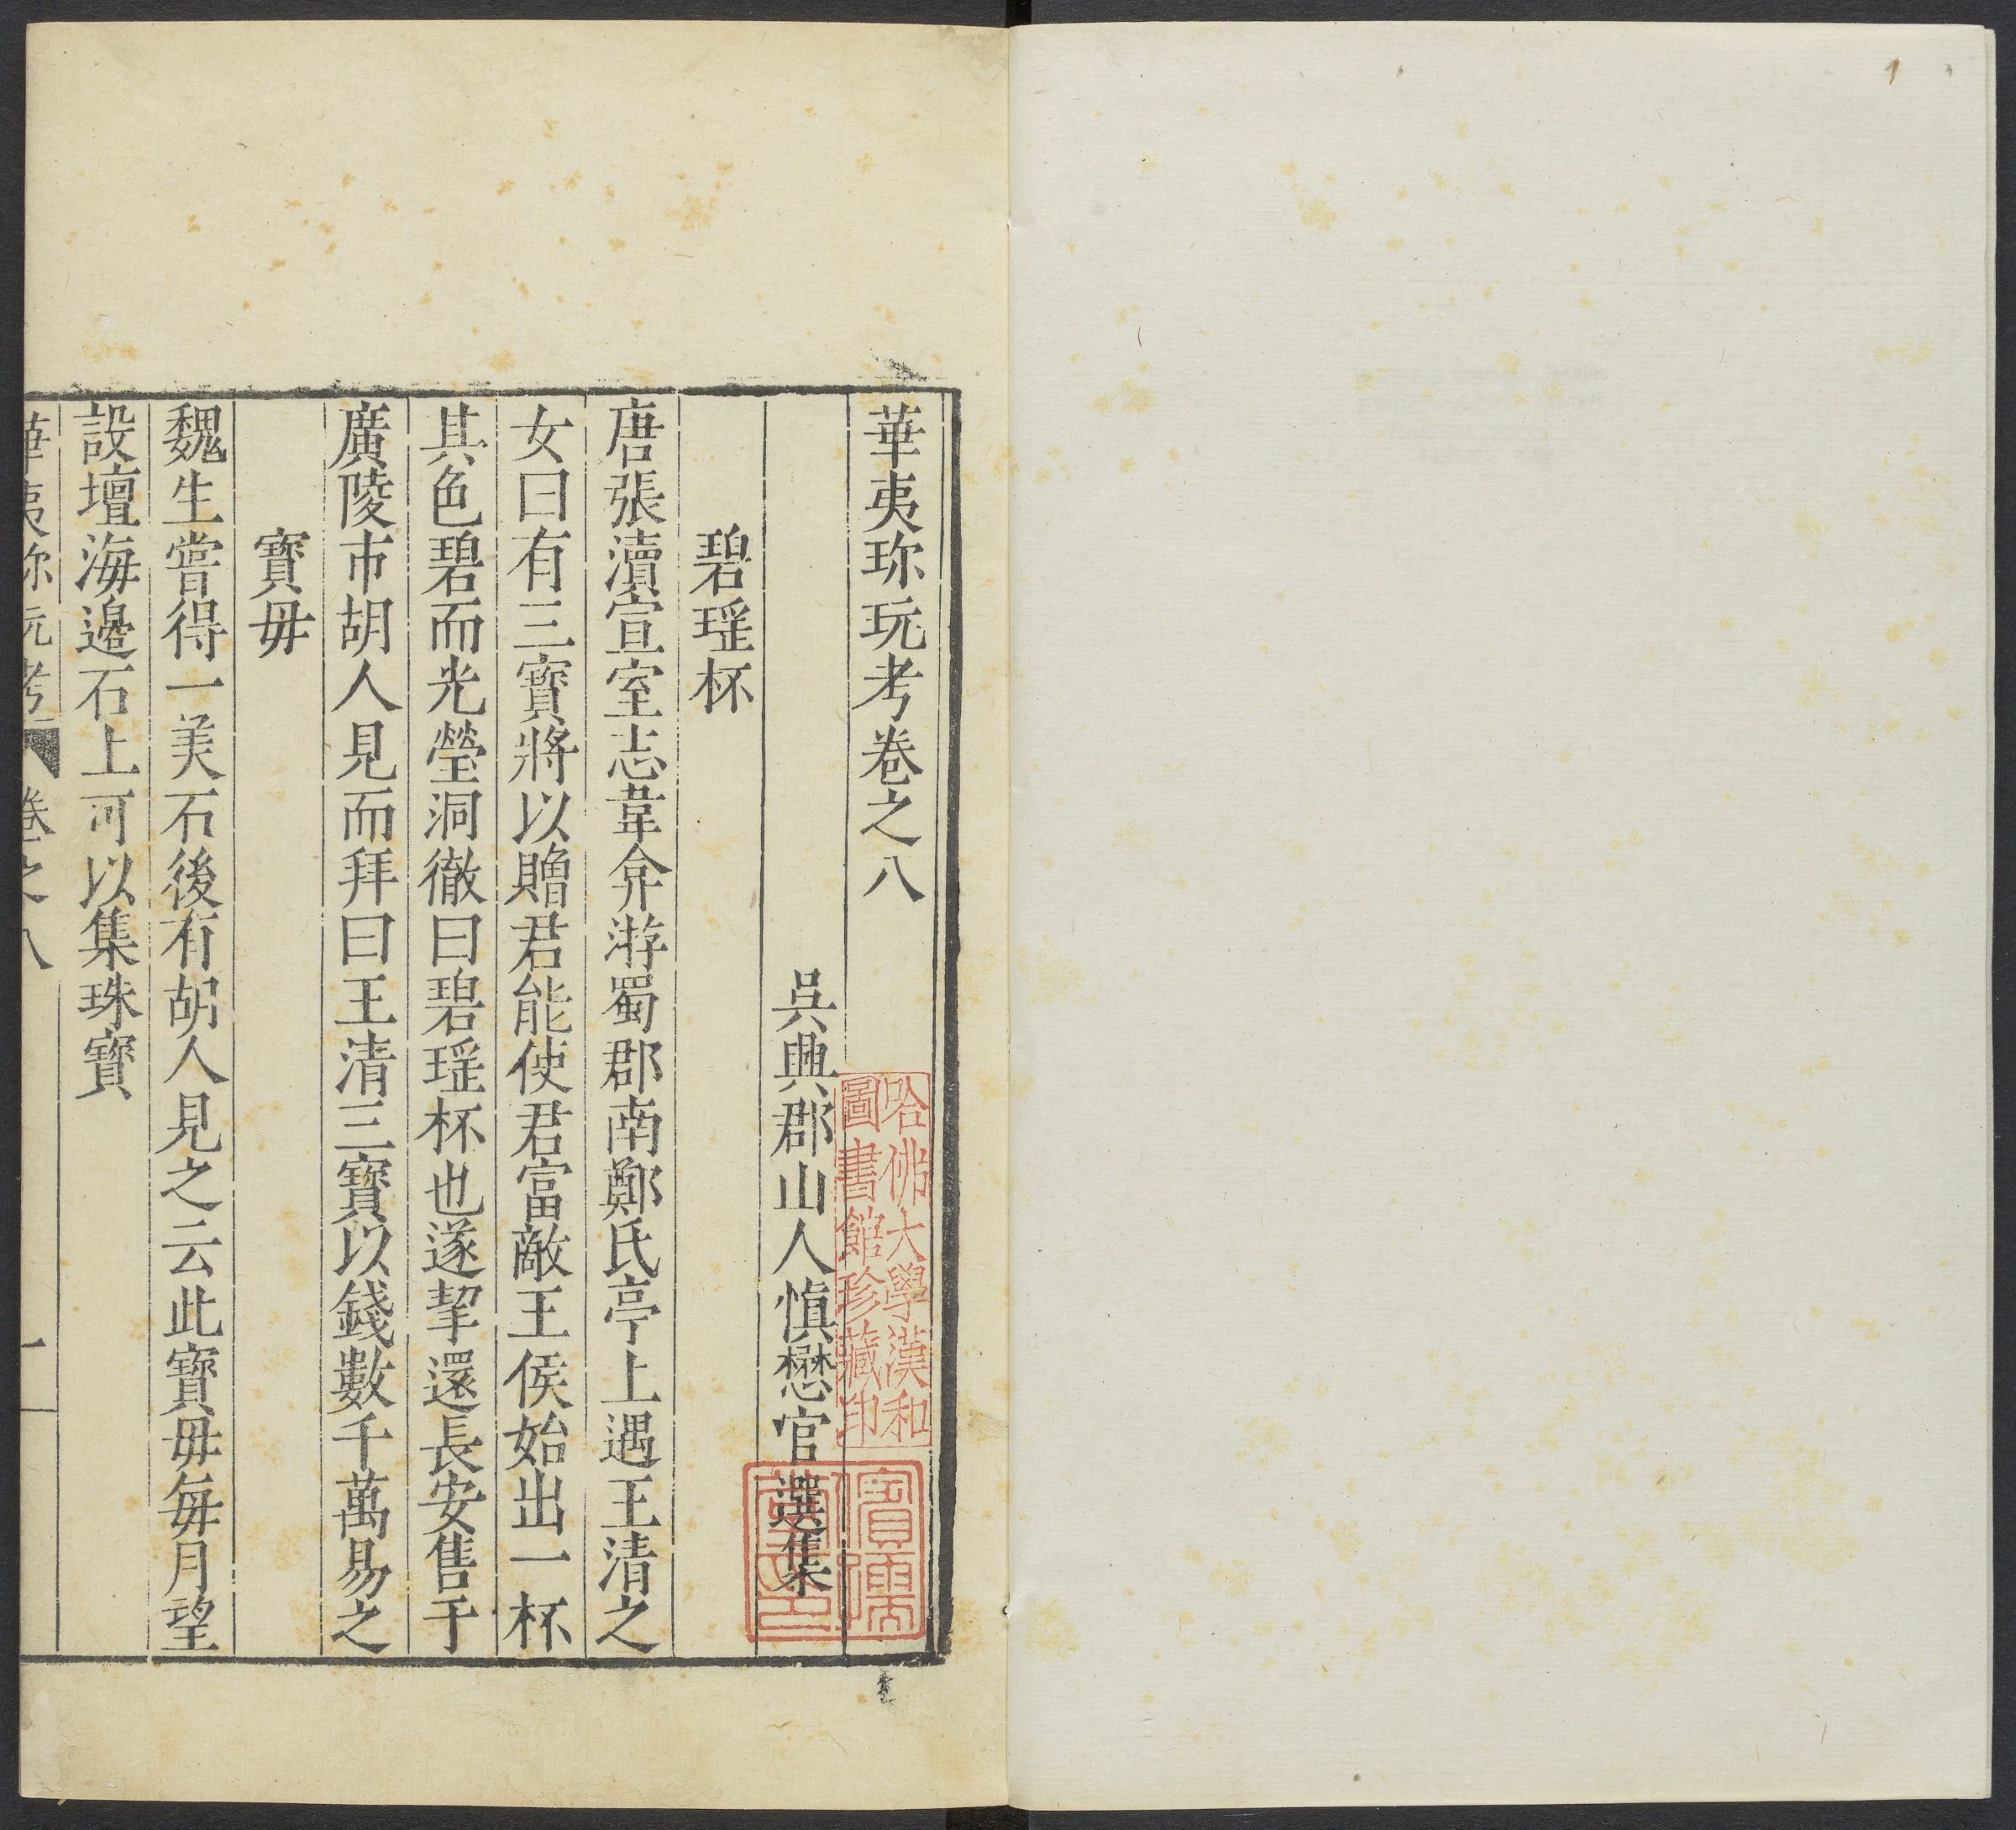 1
華夷珎玩考卷之八
吳興郡山人慎懋官選集
碧瑶杯
唐張瀆宣室志韋弇游蜀郡南鄭氏亭上遇王清之
女曰有三寶將以贈君能使君富敵王侯始出一杯
其色碧而光瑩洞徹曰碧瑶杯也遂挈還長安售于
廣陵市胡人見而拜曰王清三寶以錢數千萬易之
寶毋
魏生嘗得一美石後有胡人見之云此寶毋每月望
設壇海邉石上可以集珠寶
華夷珎玩考 卷之八 一
哈佛大學漢和
圖書館珍藏印